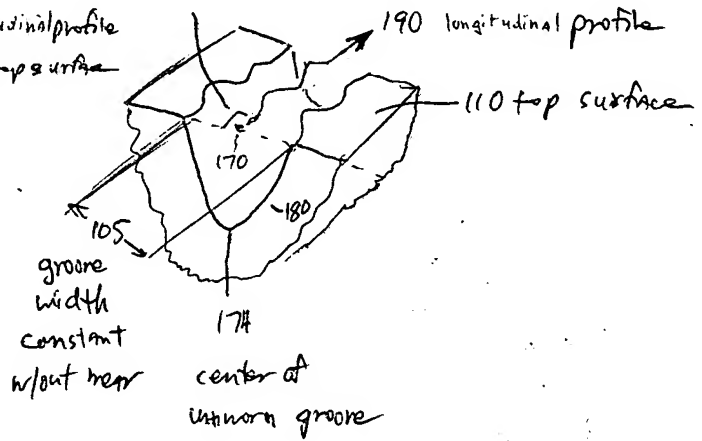 190 longitudinal profile
110 top surface
170
180
105
groove
width
constant
w/out wear
174
center of
unworn groove